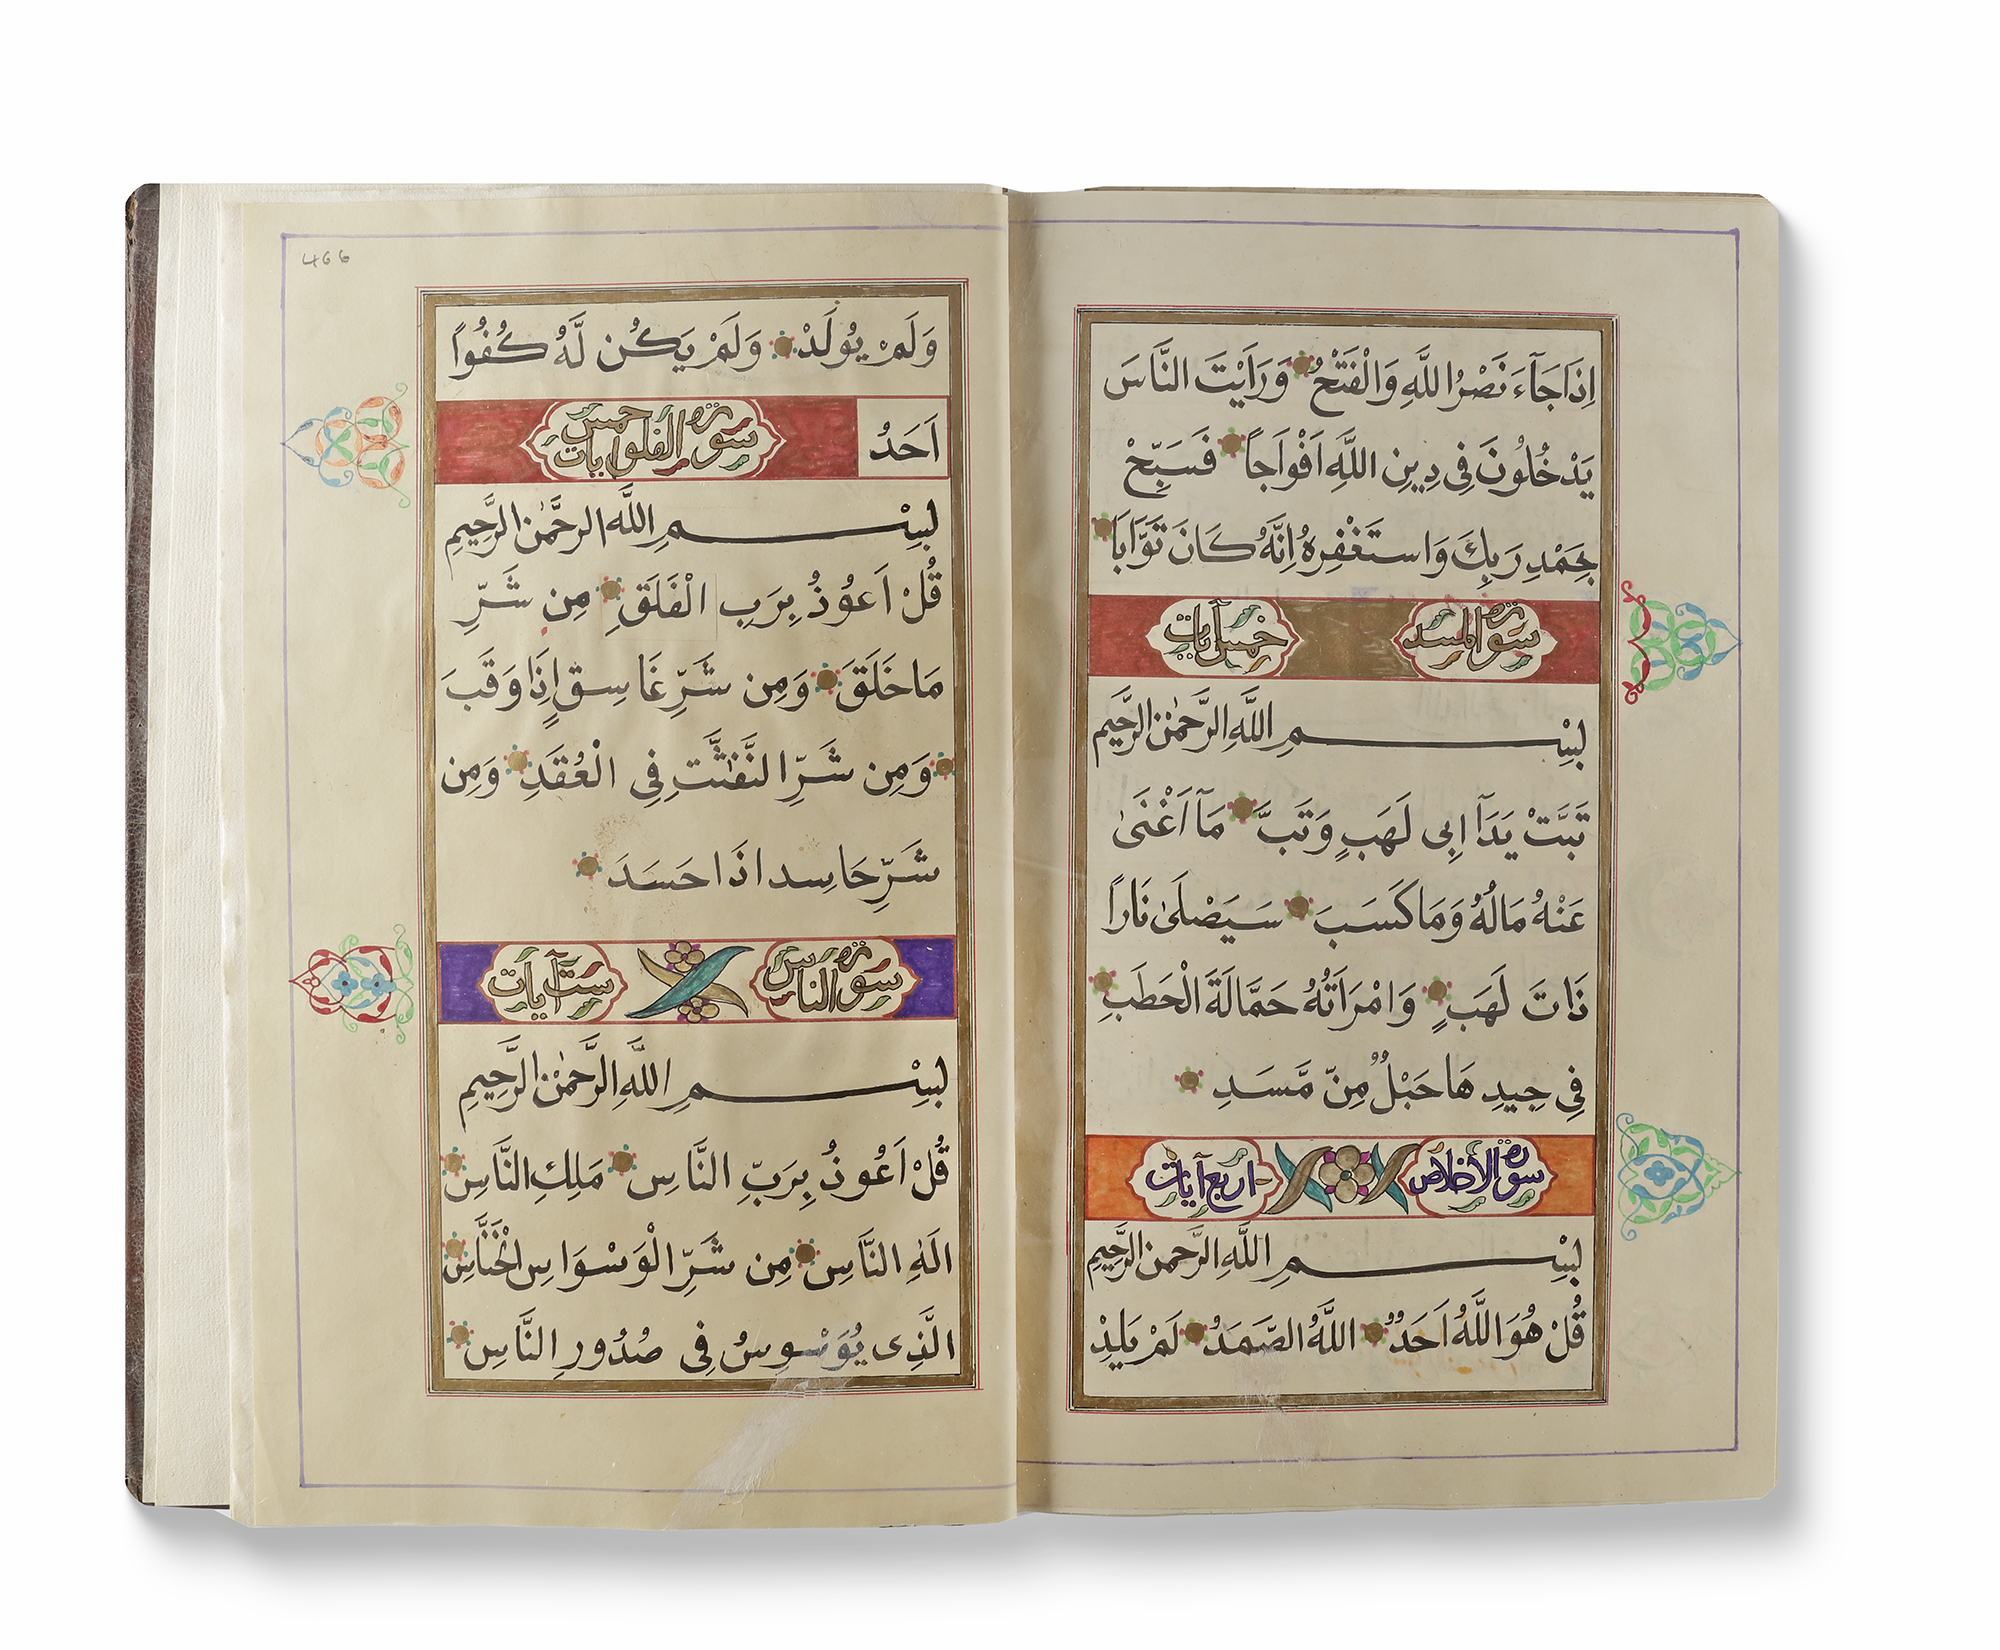 اِذَا جَآءَ نَصْرُ اللَّهِ وَالْفَتْحُ وَرَاَيْتَ النَّاسَ
يَدْخُلُونَ فِى دِينِ اللَّهِ اَفْوَاجاً فَسَبِّحْ
بِحَمْدِ رَبِكَ وَاستَغْفِرهُ اِنَّهُ كَانَ تَوَّاباَ
سورة المسد خمس آيات
بِسْمِ اللَّهِ الرَّحْمٰنِ الرَّحِيمِ
تَبَّتْ يَدَآ اَبِى لَهَبٍ وَتَبَّ مَآ اَغْنَىٰ
عَنْهُ مَالُهُ وَمَا كَسَبَ سَيَصْلَىٰ نَاراً
ذَاتَ لَهَبٍ وَامْرَاَتُهُ حَمَّالَةَ الْحَطَبِ
فِى جِيدِ هَا حَبْلٌ مِنّ مَّسَدِ
سورة الأخلاص اربع آيات
بِسْمِ اللَّهِ الرَّحمنِ الرَّحِيمِ
قُلْ هُوَ اللَّهُ اَحَدٌ اللَّهُ الصَّمَدُ لَمْ يَلِدْ
466
وَلَمْ يُولَدْ وَلَمْ يَكُن لَّهُ كُفُواً
اَحَدُ سورة الفلق خمس آيات
بِسْمِ اللَّهِ الرحَّمٰنِ الرَّحِيمِ
قُلْ اَعوُذُ بِرَبِ الْفَلَقِ مِن شَرِّ
مَا خَلَقَ وَمِن شَرِّ غَاسِقٍ اِذَا وَقَبَ
وَمِن شَرِّ النَّفّٰثَٰتِ فِى الْعُقَدِ وَمِن
شَرِّ حَاسِد اذَا حَسَدَ
سورة الناس ست آيات
بِسْمِ اللَّهِ الرَّحْمٰنِ الرَّحِيمِ
قُلْ اَعُوذُ بِرَبِّ النَّاسِ مَلِكِ النَّاسِ
الَهِ النَّاسِ مِن شَرِّ الْوَسْوَاسِ الْخَنَّاسِ
الَّذِى يُوَسْوِسُ فِى صُدُورِ النَّاسِ